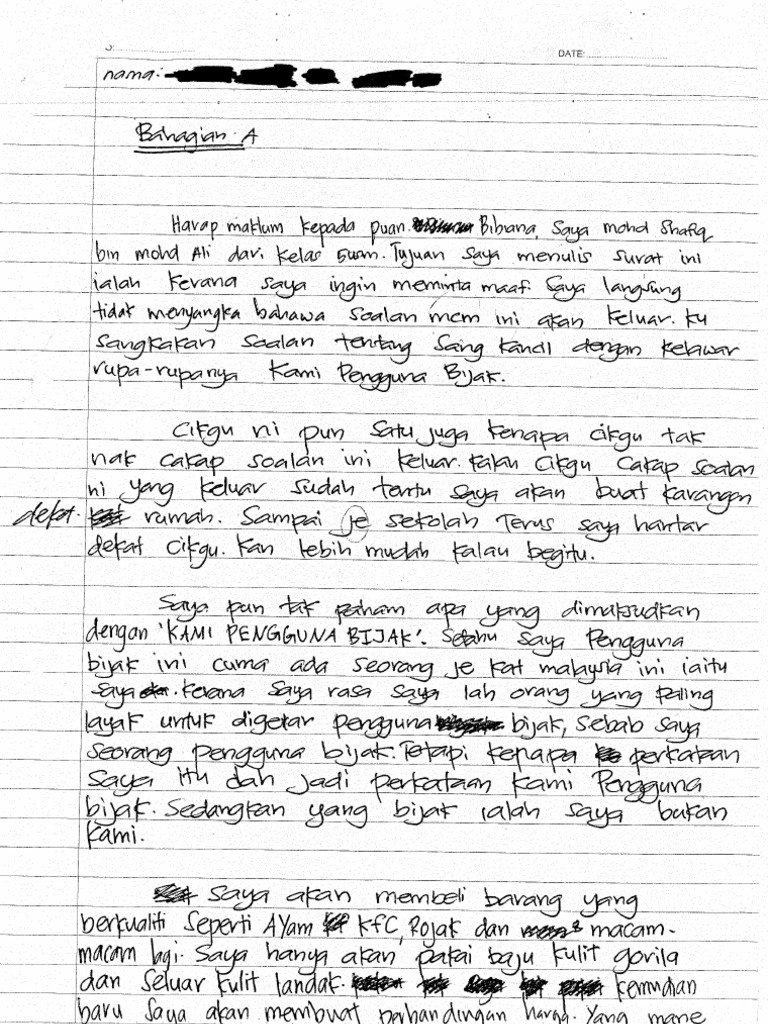 DATE:
nama:
Bahagian A
Harap maklum kepada puan Bibiana, Saya mohd Shafiq
bin mohd Ali dari kelas 5uam. Tujuan saya menulis surat ini
ialah kerana saya ingin meminta maaf. Saya langsung
tidak menyangka bahawa soalan mcm ini akan keluar. ku
sangkakan soalan tentang sang kancil dengan kelawar
rupa-rupanya Kami Pengguna Bijak.
Cikgu ni pun satu juga kenapa cikgu tak
nak cakap soalan ini keluar. kalau cikgu cakap soalan
ni yang keluar sudah tentu saya akan buat karangan
dekat rumah. Sampai je sekolah Terus saya hantar
dekat cikgu. kan lebih mudah kalau begitu.
Saya pun tak paham apa yang dimaksudkan
dengan 'KAMI PENGGUNA BIJAK'. Setahu saya Pengguna
bijak ini cuma ada seorang je kat malaysia ini iaitu
saya. kerana saya rasa saya lah orang yang paling
layak untuk digelar pengguna bijak, sebab saya
seorang pengguna bijak. Tetapi kenapa perkataan
saya itu dah jadi perkataan kami Pengguna
bijak. Sedangkan yang bijak ialah saya bukan
kami.
Saya akan membeli barang yang
berkualiti seperti AYam KfC, Rojak dan macam-
macam lagi. Saya hanya akan pakai baju kulit gorila
dan seluar kulit landak. kemudian
baru saya akan membuat perbandingan harga. Yang mane